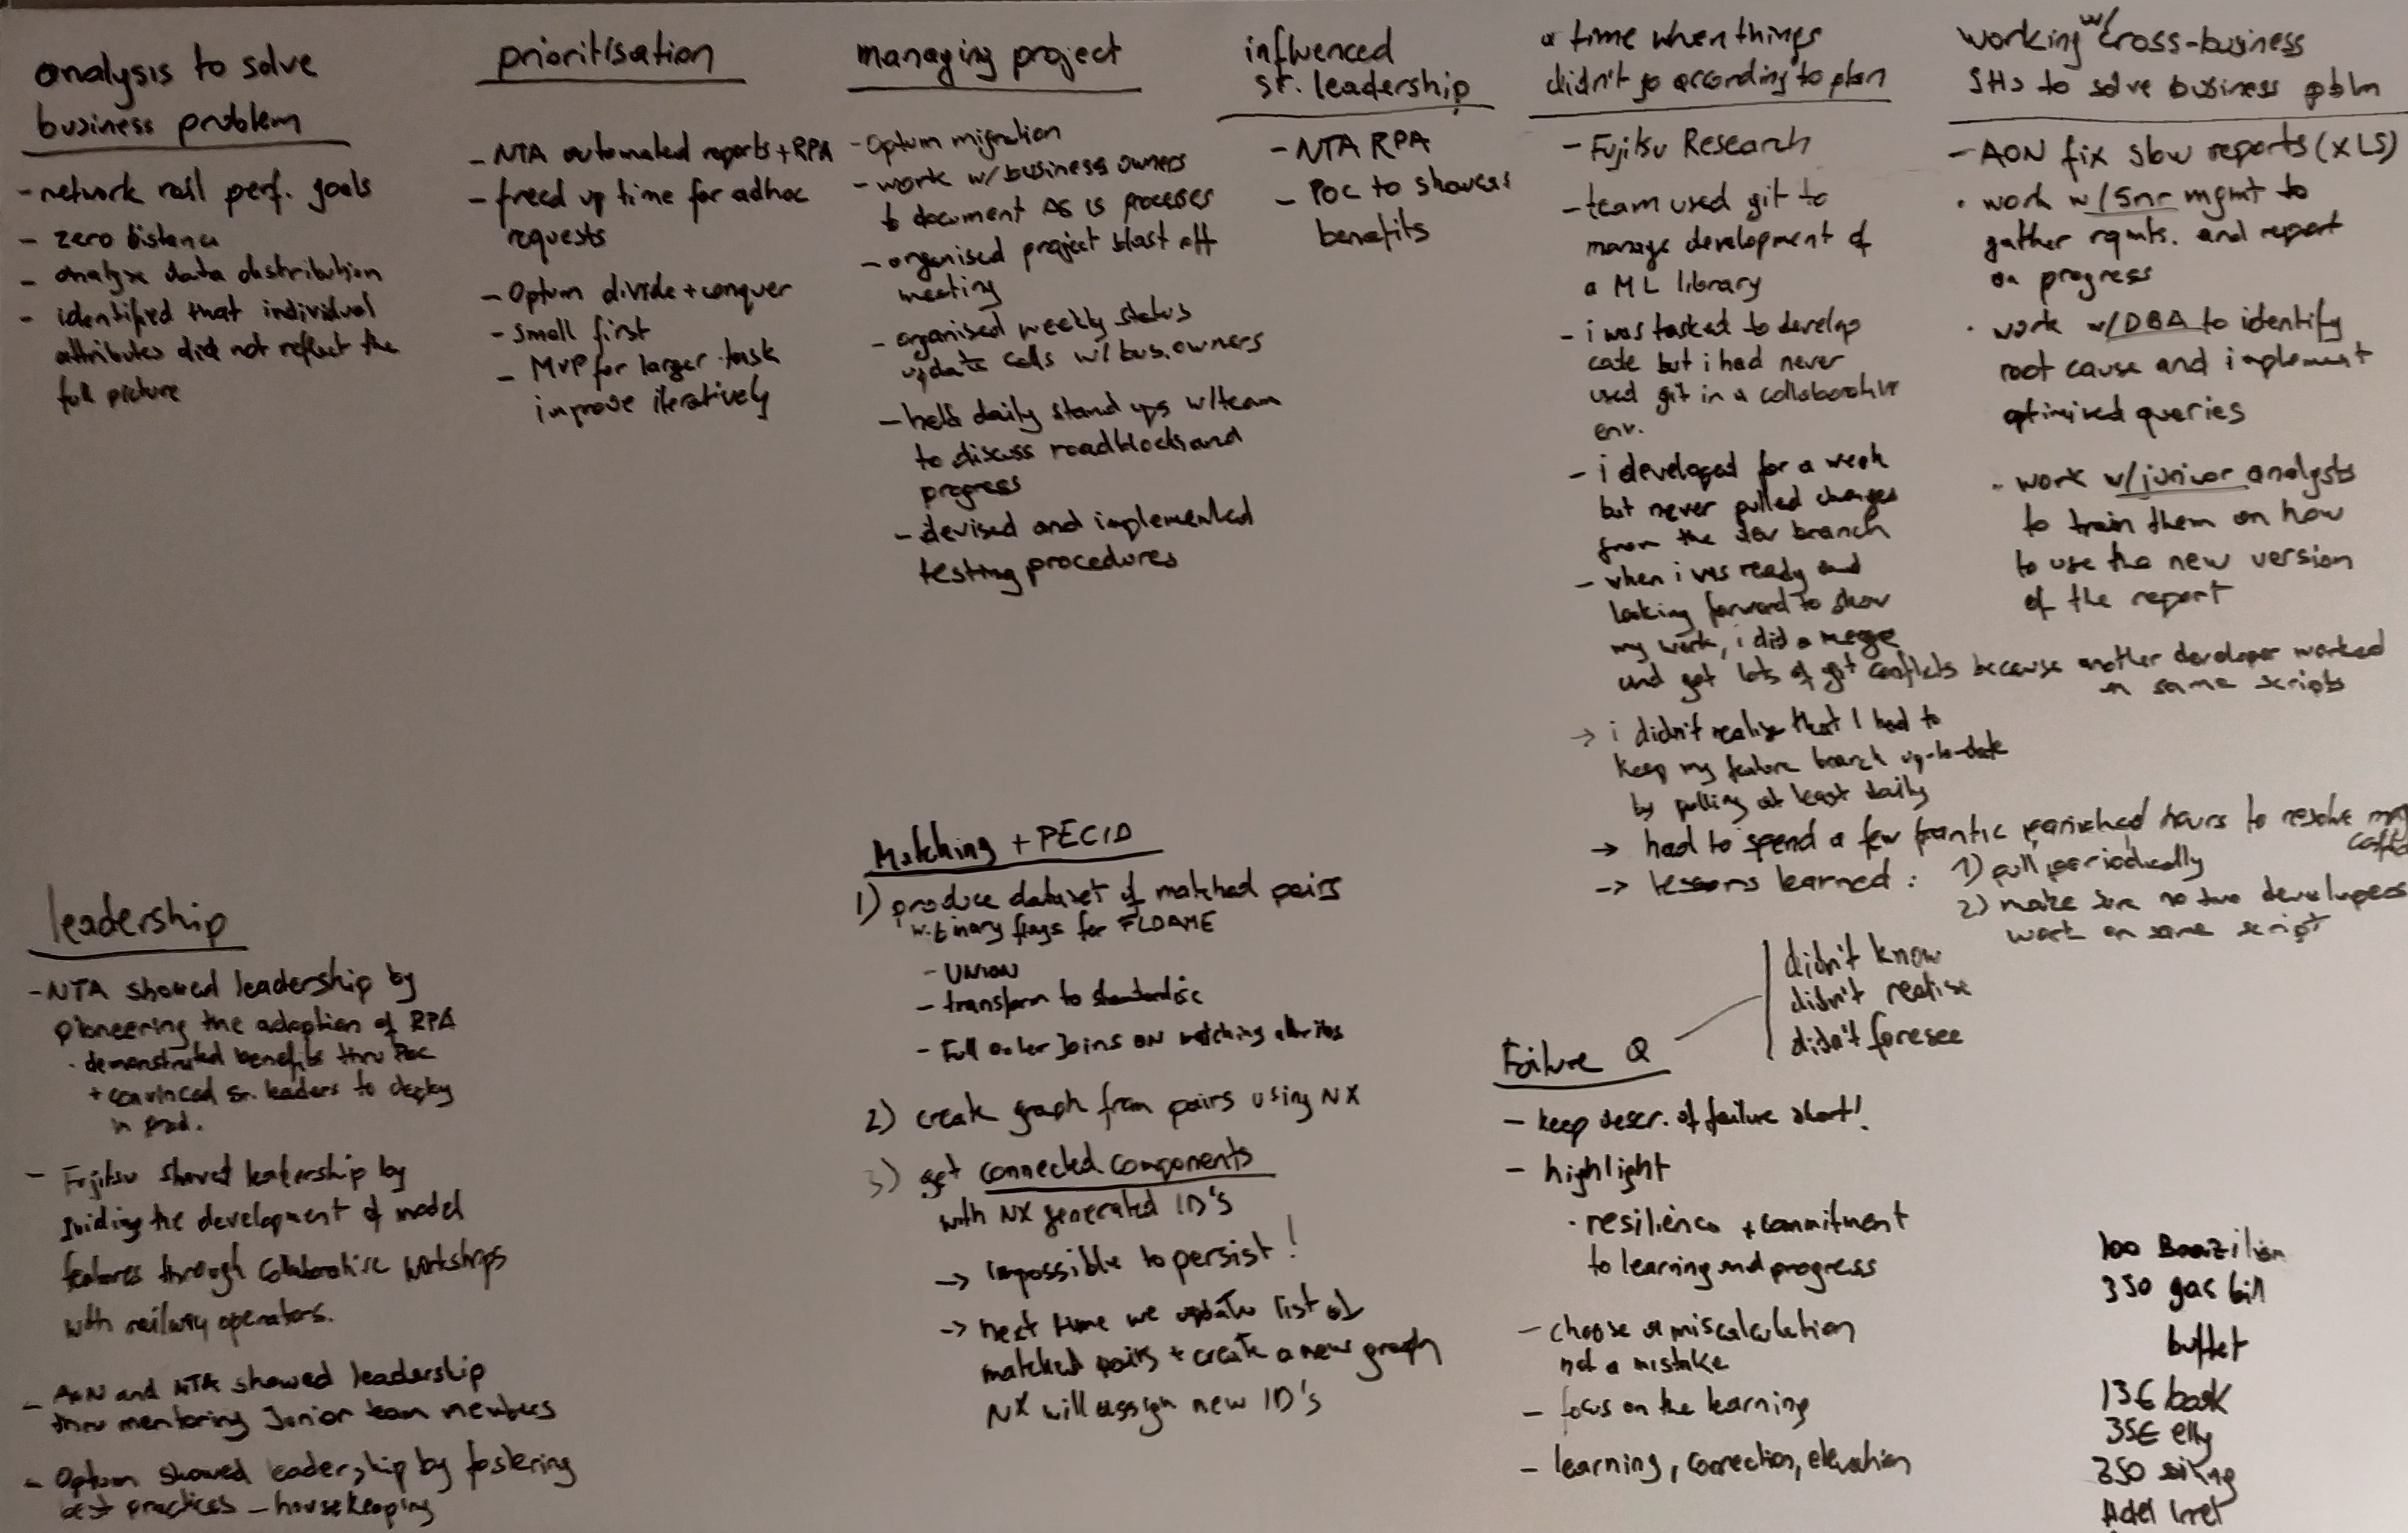 analysis to solve
business problem
- network rail perf. goals
- zero distance
- analyze data distribution
- identified that individual
attributes did not reflect the
full picture
prioritisation
- NTA automated reports + RPA
- freed up time for adhoc
requests
- Optum divide + conquer
- small first
- MVP for larger task
improve iteratively
managing project
- Optum migration
- work w/ business owners
to document AS IS processes
- organised project blast off
meeting
- organised weekly status
update calls w/ bus. owners
- held daily stand ups w/ team
to discuss roadblocks and
progress
- devised and implemented
testing procedures
influenced
sr. leadership
- NTA RPA
- POC to showcase
benefits
a time when things
didn't go according to plan
- Fujitsu Research
- team used git to
manage development of
a ML library
- i was tasked to develop
code but i had never
used git in a collaborative
env.
- i developed for a week
but never pulled changes
from the dev branch
- when i was ready and
looking forward to show
my work, i did a merge
and got lots of git conflicts because another developer worked
on same scripts
→ i didn't realize that I had to
keep my feature branch up-to-date
by pulling at least daily
→ had to spend a few frantic panicked hours to resolve
→ lessons learned: 1) pull periodically
2) make sure no two developers
work on same script
working w/ cross-business
SHs to solve business pblm
- AON fix slow reports (XLS)
· work w/ snr mgmt to
gather rqmts. and report
on progress
· work w/ DBA to identify
root cause and implement
optimised queries
· work w/ junior analysts
to train them on how
to use the new version
of the report
leadership
- NTA showed leadership by
pioneering the adoption of RPA
· demonstrated benefits thru PoC
+ convinced sr. leaders to deploy
in prod.
- Fujitsu showed leadership by
guiding the development of model
features through collaborative workshops
with railway operators.
- AON and NTA showed leadership
thru mentoring Junior team members
- Optum showed leadership by fostering
best practices - housekeeping
Matching + PECID
1) produce dataset of matched pairs
w. binary flags for FLDAME
- UNION
- transform to standardise
- Full outer Joins ON matching attribs
2) create graph from pairs using NX
3) get connected components
with NX generated ID's
→ impossible to persist!
→ next time we update list of
matched pairs + create a new graph
NX will assign new ID's
didn't know
didn't realise
didn't foresee
Failure Q
- keep descr. of failure short!
- highlight
· resilience + commitment
to learning and progress
- choose a miscalculation
not a mistake
- focus on the learning
- learning, correction, elevation
100 Brazilian
350 gas bill
buffet
13€ book
35€ elly
250